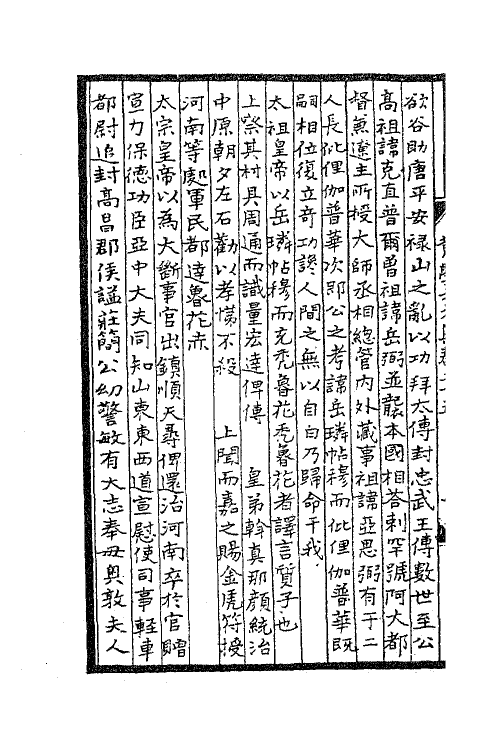 欲谷助唐平安祿山之亂以功拜太傅封忠武王傳數世至公
高祖諱克直普爾曾祖諱岳弼並襲本國相荅剌罕號阿大都
督兼遼主所授大師丞相總管內外藏事祖諱亞思弼有子二
人長仳俚伽普華次即公之考諱岳璘帖穆而仳俚伽普華既
嗣相位復立竒功讒人間之無以自白乃歸命于我
太祖皇帝以岳璘帖穆而充禿魯花禿魯花者譯言質子也
上察其材具周通而識量宏達俾傅　皇弟斡真那顔統治
中原朝夕左右勸以孝悌不殺　上聞而嘉之賜金虎符授
河南等處軍民都達魯花赤
太宗皇帝以為大斷事官出鎮順天尋俾還治河南卒於官贈
宣力保德功臣亞中大夫同知山東東西道宣慰使司事輕車
都尉追封高昌郡侯謚莊簡公幼警敏有大志奉毋奥敦夫人